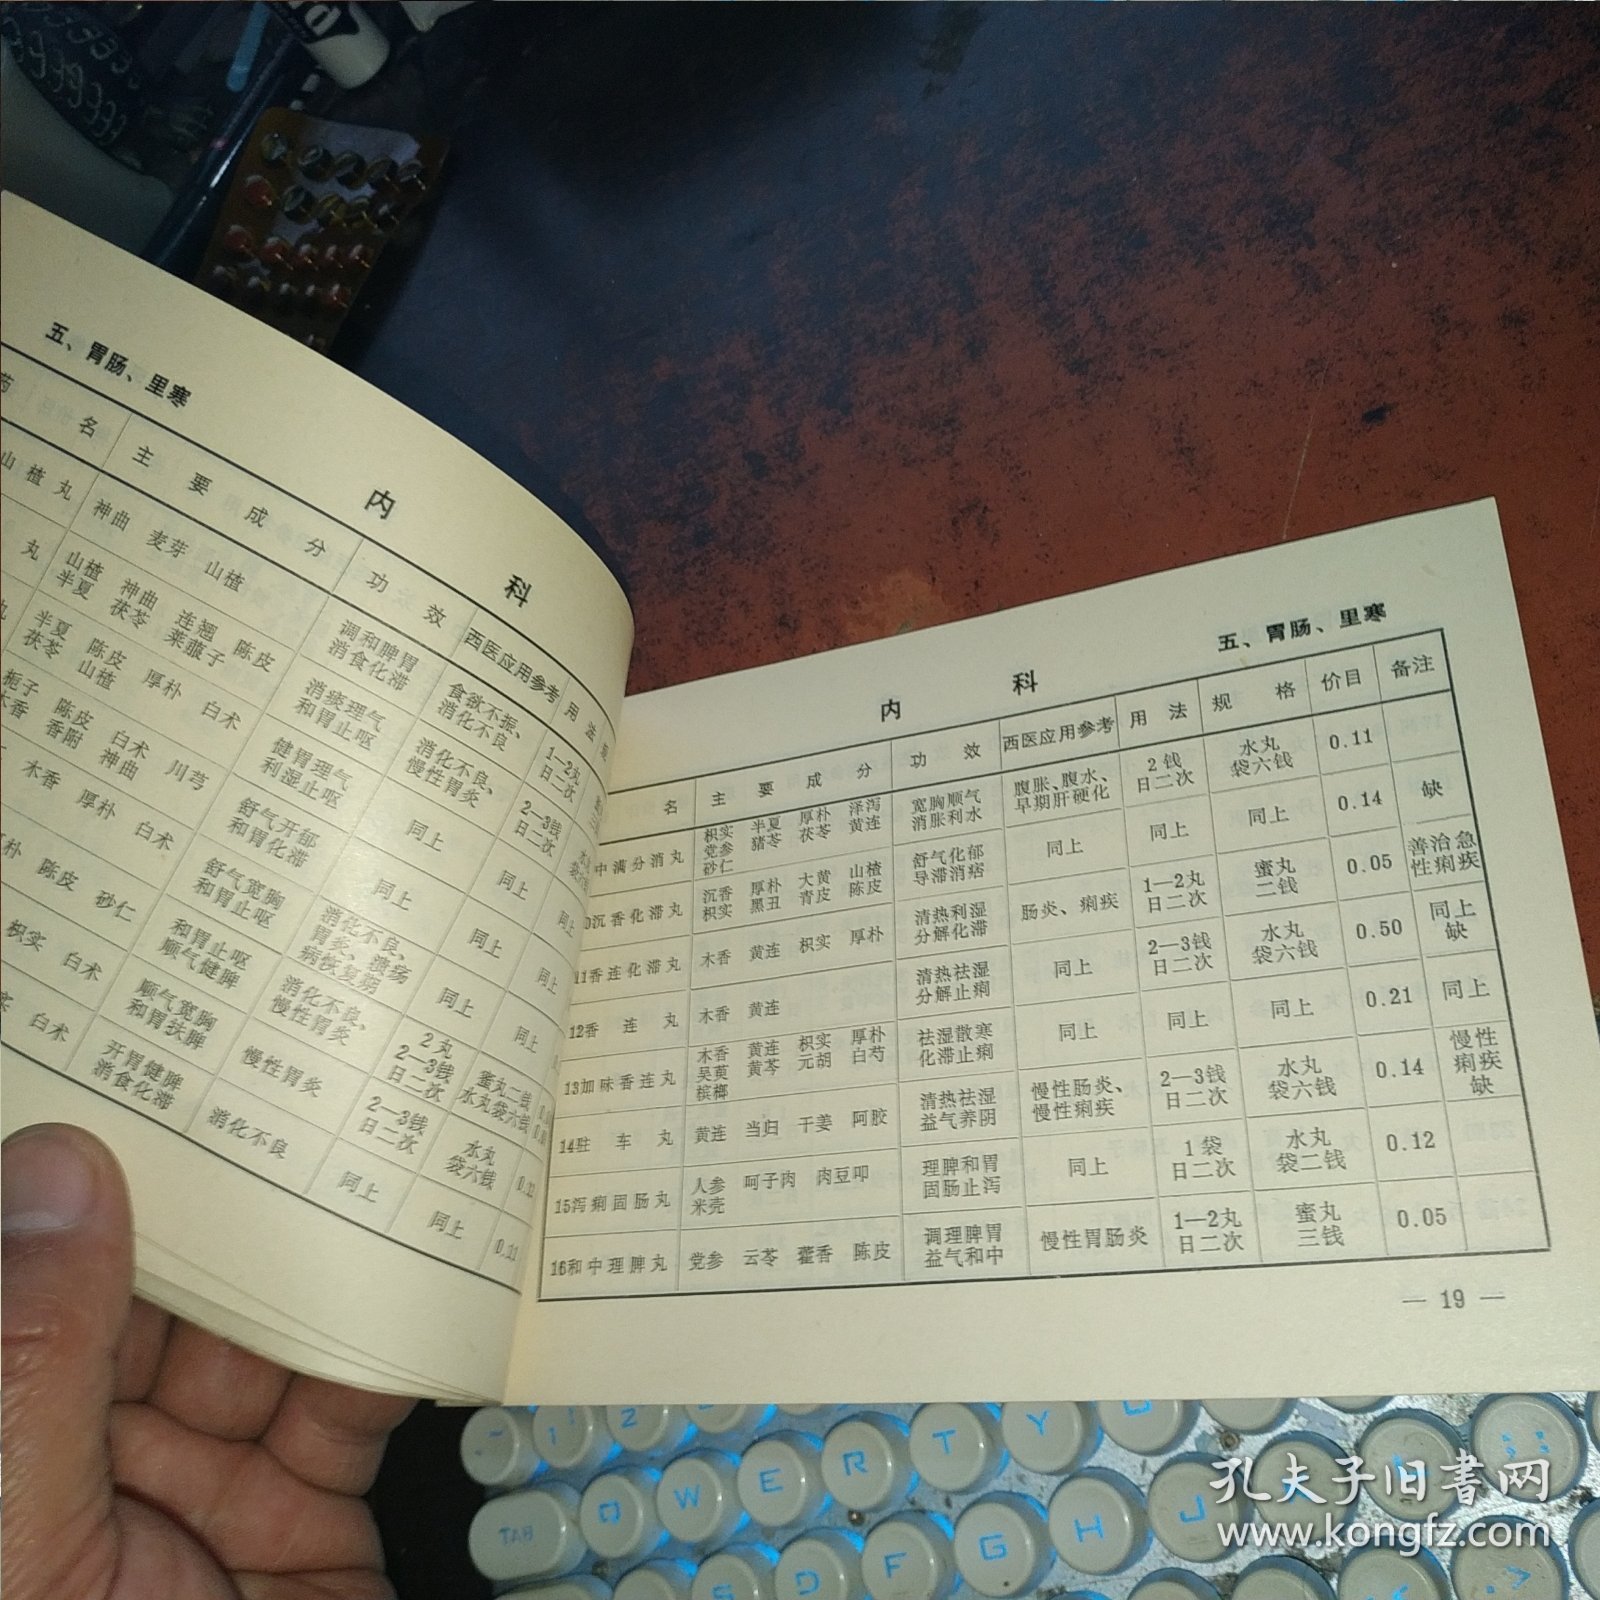 五、胃肠、里寒
内 科
药 名 主要成分 功效 西医应用参考 用法
山楂丸 神曲 麦芽 山楂 调和脾胃 消食化滞 食欲不振、消化不良 1—2丸 日二次
丸 山楂 神曲 连翘 陈皮 半夏 茯苓 莱菔子 消痰理气 和胃止呕 消化不良、慢性胃炎 2—3钱 日二次
半夏 陈皮 厚朴 白术 茯苓 山楂 健胃理气 利湿止呕 同上 同上 同上
栀子 陈皮 白术 川芎 木香 香附 神曲 舒气开郁 和胃化滞 同上 同上 同上
木香 厚朴 白术 舒气宽胸 和胃止呕 消化不良、胃炎、溃疡病恢复期 同上 同上
朴 陈皮 砂仁 和胃止呕 顺气健脾 消化不良、慢性胃炎 2丸 2—3钱 日二次 蜜丸二钱 水丸袋六钱
枳实 白术 顺气宽胸 和胃扶脾 慢性胃炎 2—3钱 日二次 水丸 袋六钱
白术 开胃健脾 消食化滞 消化不良 同上 同上 0.11
内 科
五、胃肠、里寒
名 主要成分 功效 西医应用参考 用法 规格 价目 备注
中满分消丸 枳实 半夏 厚朴 泽泻 党参 猪苓 茯苓 黄连 砂仁 宽胸顺气 消胀利水 腹胀、腹水、早期肝硬化 2钱 日二次 水丸 袋六钱 0.11
0沉香化滞丸 沉香 厚朴 大黄 山楂 枳实 黑丑 青皮 陈皮 舒气化郁 导滞消痞 同上 同上 同上 0.14 缺
11香连化滞丸 木香 黄连 枳实 厚朴 清热利湿 分解化滞 肠炎、痢疾 1—2丸 日二次 蜜丸 二钱 0.05 善治急性痢疾
12香连丸 木香 黄连 清热祛湿 分解止痢 同上 2—3钱 日二次 水丸 袋六钱 0.50 同上 缺
13加味香连丸 木香 黄连 枳实 厚朴 吴萸 黄芩 元胡 白芍 槟榔 祛湿散寒 化滞止痢 同上 同上 同上 0.21 同上
14驻车丸 黄连 当归 干姜 阿胶 清热祛湿 益气养阴 慢性肠炎、慢性痢疾 2—3钱 日二次 水丸 袋六钱 0.14 慢性痢疾 缺
15泻痢固肠丸 人参 呵子肉 肉豆叩 米壳 理脾和胃 固肠止泻 同上 1袋 日二次 水丸 袋二钱 0.12
16和中理脾丸 党参 云苓 藿香 陈皮 调理脾胃 益气和中 慢性胃肠炎 1—2丸 日二次 蜜丸 三钱 0.05
— 19 —
1 2
TAB Q W E R T Y U
S D F G H J
孔夫子旧书网
www.kongfz.com